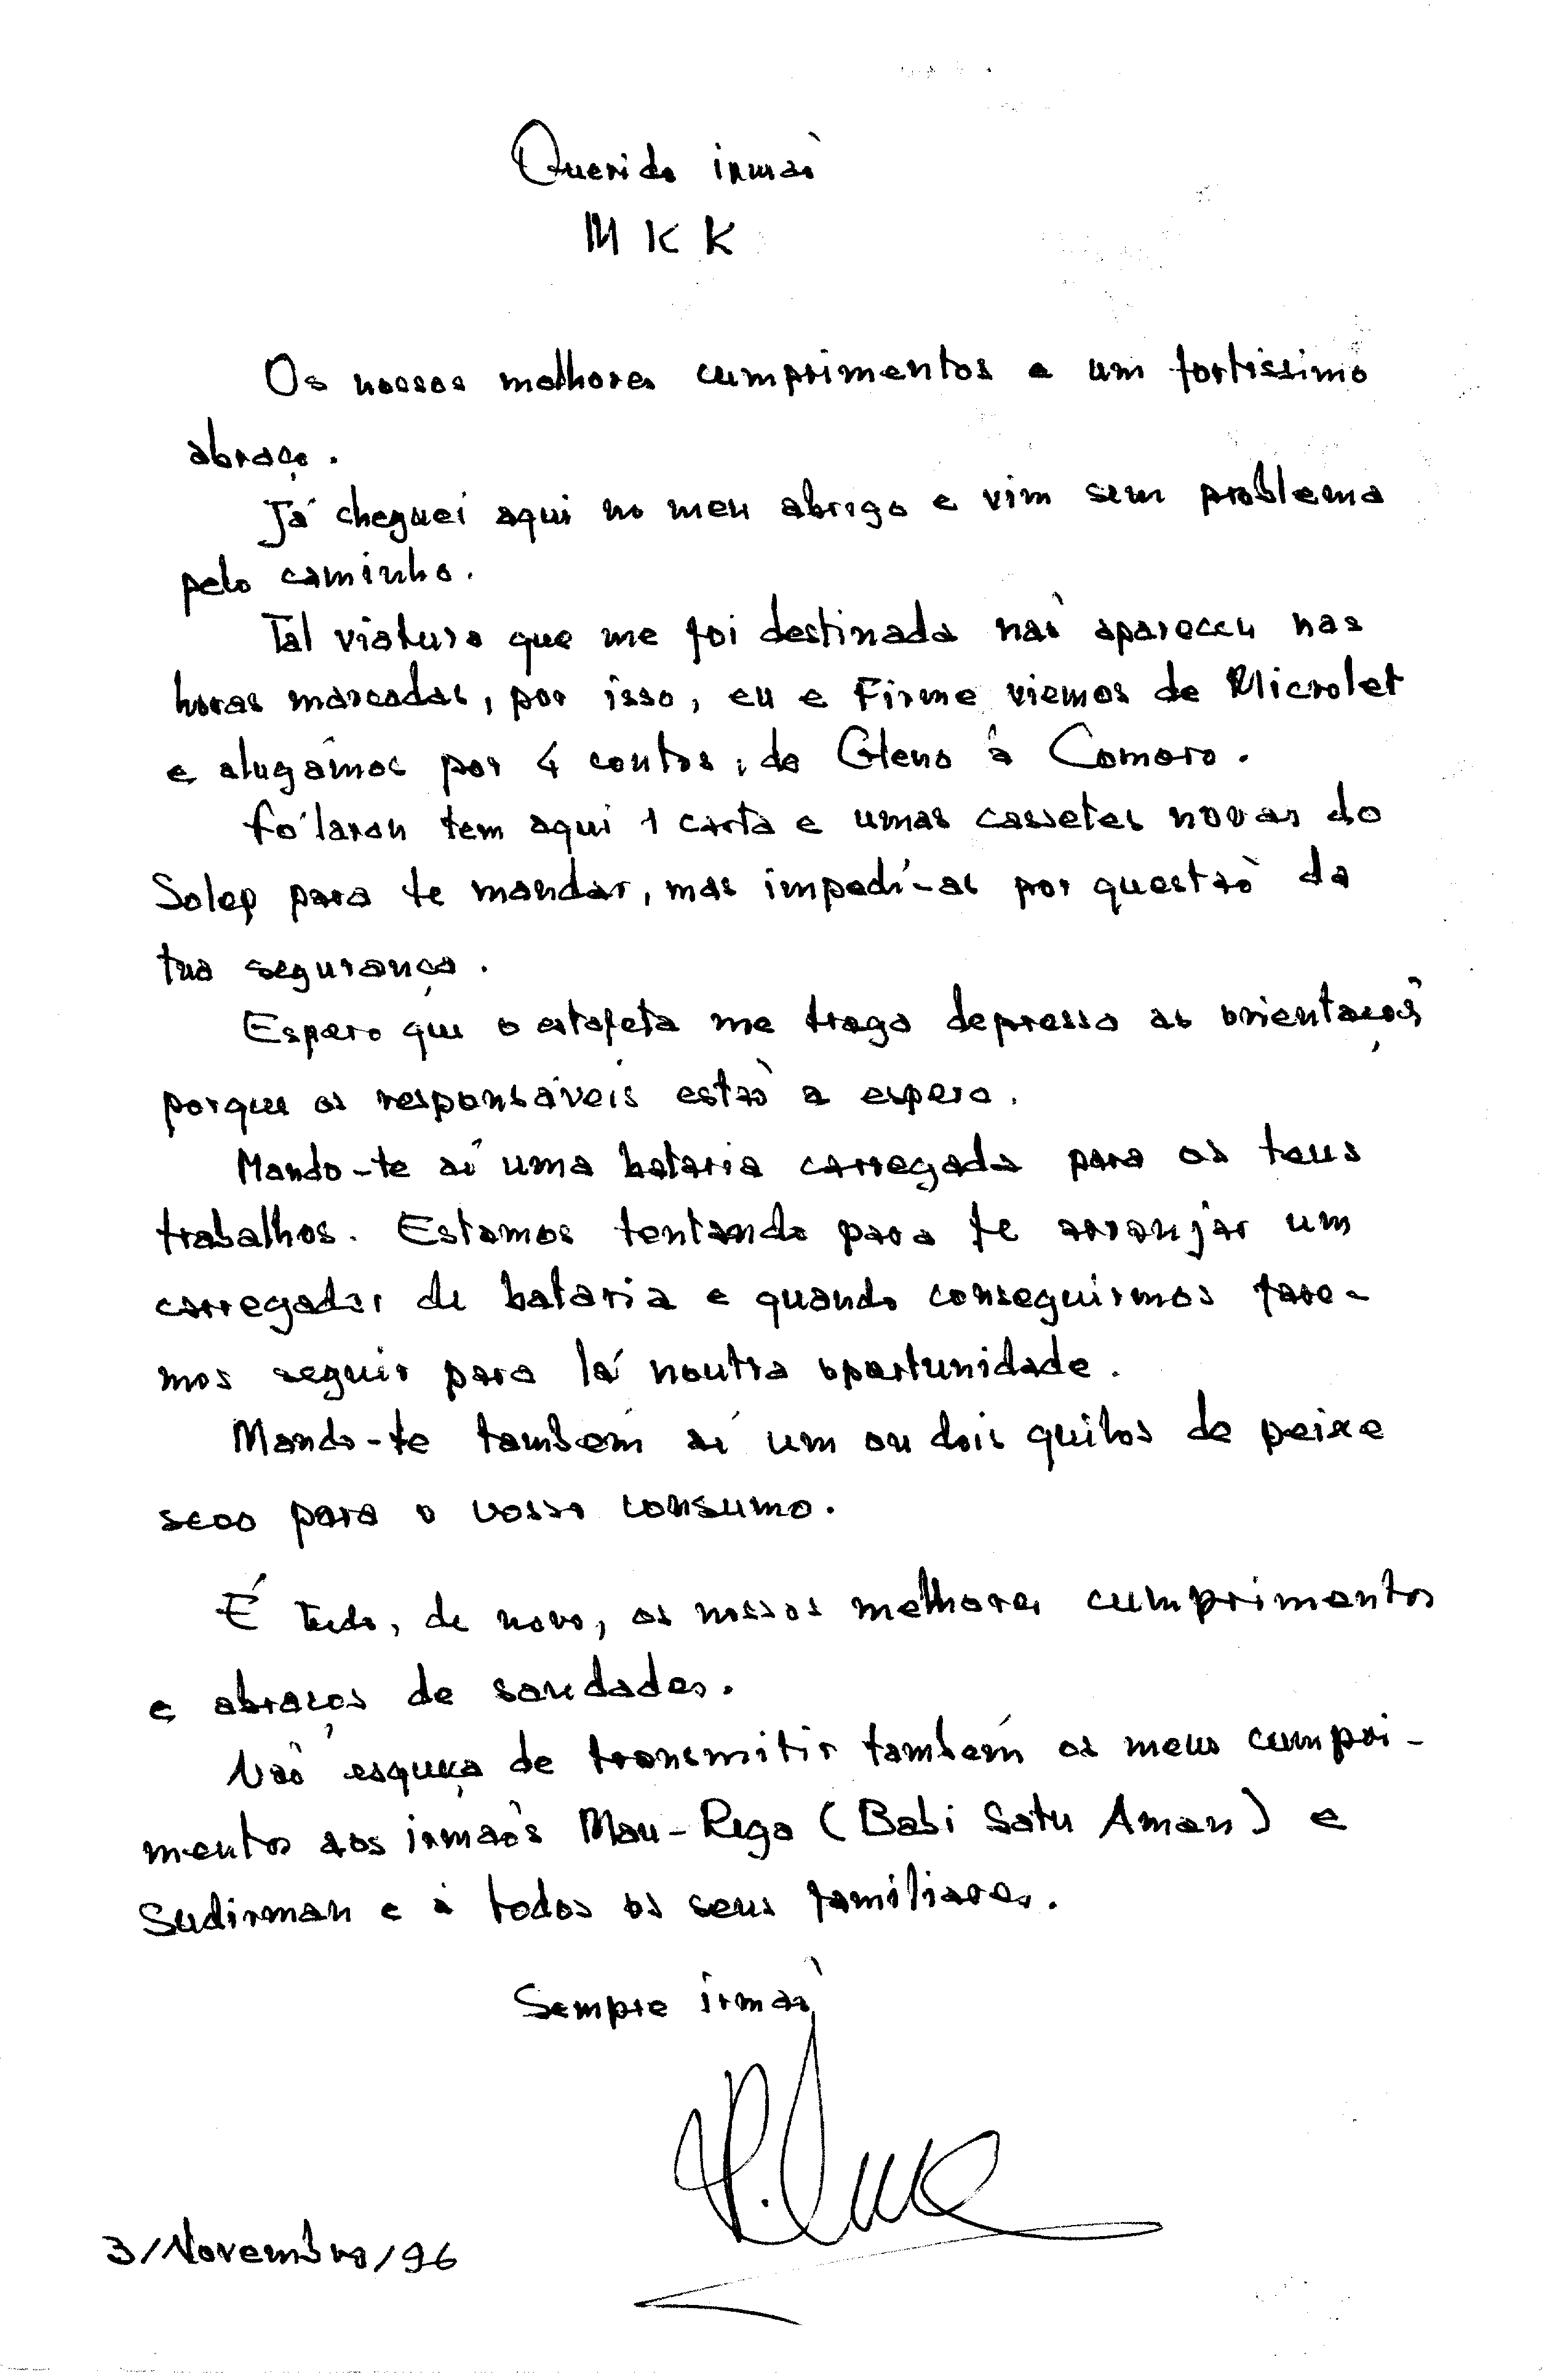 Querido irmão
M K K
Os nossos melhores cumprimentos e um fortissimo
abraço.
Já cheguei aqui no meu abrigo e vim sem problema
pelo caminho.
Tal viatura que me foi destinada não apareceu nas
horas marcadas, por isso, eu e Firme viemos de Microlet
e alugámos por 4 contos, de Gleno à Comoro.
Fo'laran tem aqui 1 carta e umas cassetes novas do
Solep para te mandar, mas impedí-as por questão da
tua segurança.
Espero que o estafeta me traga depressa as orientações
porque os responsáveis estão a espera.
Mando-te aí uma bataria carregada para os teus
trabalhos. Estamos tentando para te arranjar um
carregador de bataria e quando conseguirmos fare-
mos seguir para lá noutra oportunidade.
Mando-te também aí um ou dois quilos de peixe
seco para o vosso consumo.
É tudo, de novo, os nossos melhores cumprimentos
e abraços de saudades.
Não esqueça de transmitir também os meus cumpri-
mentos aos irmãos Mau-Rega (Babi Satu Aman) e
Sudirman e à todos os seus familiares.
Sempre irmão
3/Novembro/96